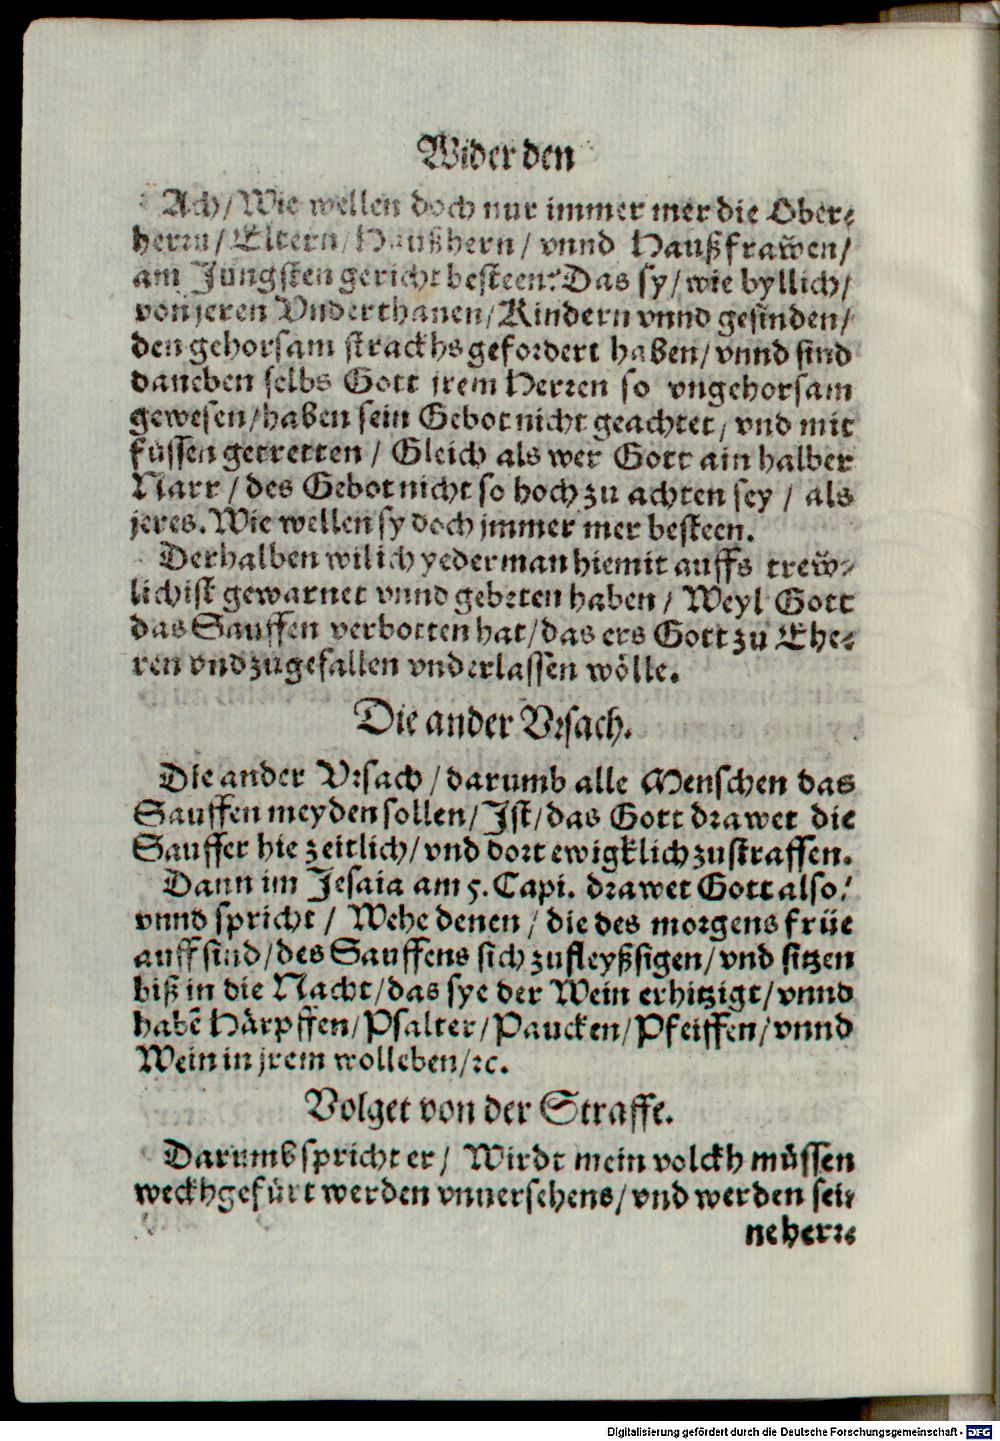 Wider den
Ach/ Wie wellen doch nur immer mer die Ober⸗
herrn/ Eltern/ Haußhern/ vnnd Haußfraẅen/
am Jüngsten gericht besteen? Das sy/ wie byllich/
von jeren Vnderthanen/ Kindern vnnd gesinden/
den gehorsam strackhs gefordert haben/ vnnd sind
daneben selbs Gott jrem Herren so vngehorsam
gewesen/ haben sein Gebot nicht geachtet/ vnd mit
füssen getretten/ Gleich als wer Gott ain halber
Narr/ des Gebot nicht so hoch zu achten sey/ als
jeres. Wie wellen sy doch jmmer mer besteen.
Derhalben wil ich yederman hiemit auffs treẅ⸗
lichist gewarnet vnnd gebeten haben/ Weyl Gott
das Sauffen verbotten hat/ das ers Gott zu Ehe⸗
ren vnd zu gefallen vnderlassen wölle.
Die ander Vrsach.
Die ander Vrsach/ darumb alle Menschen das
Sauffen meyden sollen/ Ist/ das Gott drawet die
Sauffer hie zeitlich/ vnd dort ewigklich zustraffen.
Dann im Jesaia am 5. Capi. drawet Gott also/
vnnd spricht/ Wehe denen/ die des morgens früe
auff sind/ des Sauffens sich zufleyßsigen/ vnd sitzen
biß in die Nacht/ das sye der Wein erhitzigt/ vnnd
habē Härpffen/ Psalter/ Paucken/ Pfeiffen/ vnnd
Wein in jrem wolleben/ ꝛc.
Volget von der Straffe.
Darumb spricht er/ Wirdt mein volckh müssen
weckhgefürt werden vnuersehens/ vnd werden sei⸗
ne herr⸗
Digitalisierung gefördert durch die Deutsche Forschungsgemeinschaft - DFG